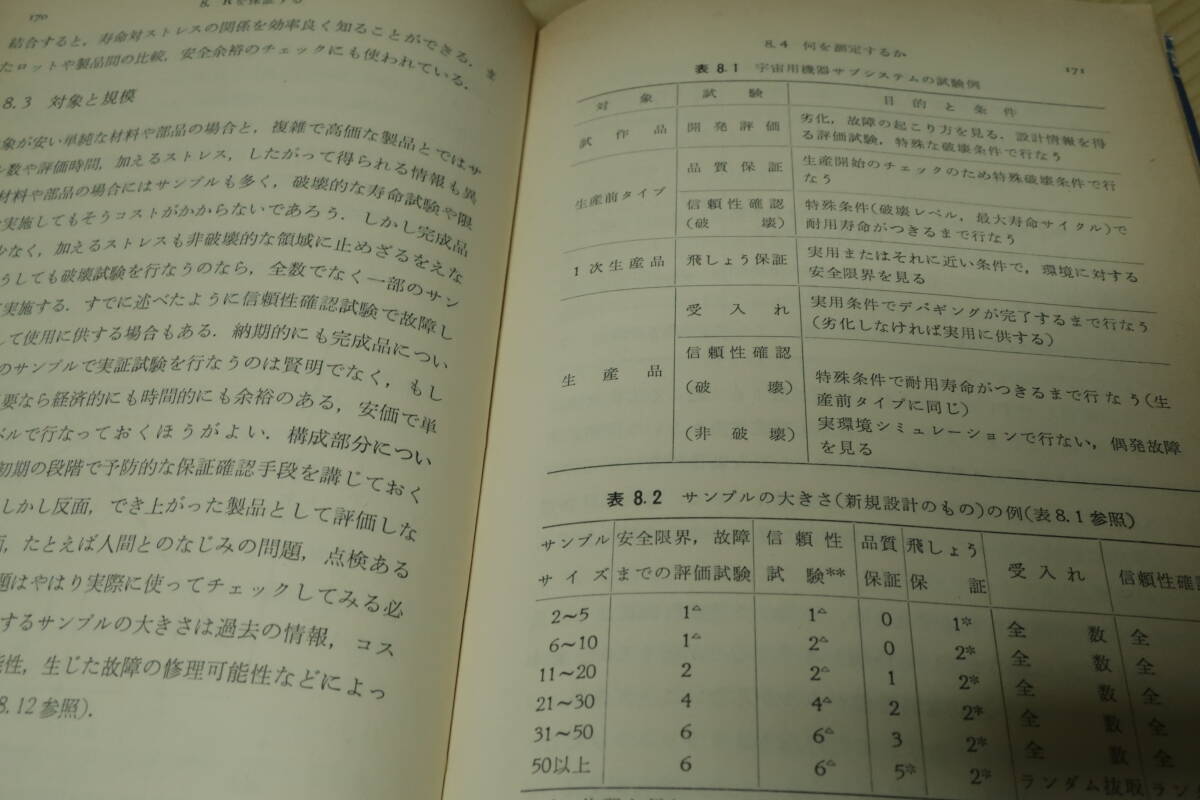 170
8. Rを保証する
結合すると，寿命対ストレスの関係を効率良く知ることができる．ま
たロットや製品間の比較，安全余裕のチェックにも使われている．
8.3 対象と規模
象が安い単純な材料や部品の場合と，複雑で高価な製品とではサ
ル数や評価時間，加えるストレス，したがって得られる情報も異
材料や部品の場合にはサンプルも多く，破壊的な寿命試験や限
実施してもそうコストがかからないであろう．しかし完成品
少なく，加えるストレスも非破壊的な領域に止めざるをえな
うしても破壊試験を行なうのなら，全数でなく一部のサン
実施する．すでに述べたように信頼性確認試験で故障し
して使用に供する場合もある．納期的にも完成品につい
のサンプルで実証試験を行なうのは賢明でなく，もし
要なら経済的にも時間的にも余裕のある，安価で単
ベルで行なっておくほうがよい．構成部分につい
初期の段階で予防的な保証確認手段を講じておく
しかし反面，でき上がった製品として評価しな
面，たとえば人間とのなじみの問題，点検ある
題はやはり実際に使ってチェックしてみる必
するサンプルの大きさは過去の情報，コス
能性，生じた故障の修理可能性などによっ
8.12参照）．
8.4 何を測定するか
171
表 8.1 宇宙用機器サブシステムの試験例
対象 試験 目的と条件
試作品 開発評価 劣化，故障の起こり方を見る．設計情報を得
る評価試験，特殊な破壊条件で行なう
生産前タイプ 品質保証 生産開始のチェックのため特殊破壊条件で行
なう
信頼性確認 特殊条件（破壊レベル，最大寿命サイクル）で
（破壊） 耐用寿命がつきるまで行なう
1次生産品 飛しょう保証 実用またはそれに近い条件で，環境に対する
安全限界を見る
生産品 受入れ 実用条件でデバギングが完了するまで行なう
（劣化しなければ実用に供する）
信頼性確認
（破壊） 特殊条件で耐用寿命がつきるまで行なう（生
産前タイプに同じ）
（非破壊） 実環境シミュレーションで行ない，偶発故障
を見る
表 8.2 サンプルの大きさ（新規設計のもの）の例（表8.1参照）
サンプル 安全限界，故障 信頼性 品質 飛しょう 受入れ 信頼性確認
サイズ までの評価試験 試験** 保証 保証
2～5 1△ 1△ 0 1* 全数 全
6～10 1△ 2△ 0 2* 全数 全
11～20 2 2△ 1 2* 全数 全
21～30 4 4△ 2 2* 全数 全
31～50 6 6△ 3 2* 全数 全
50以上 6 6△ 5* 2* ランダム抜取 ラン